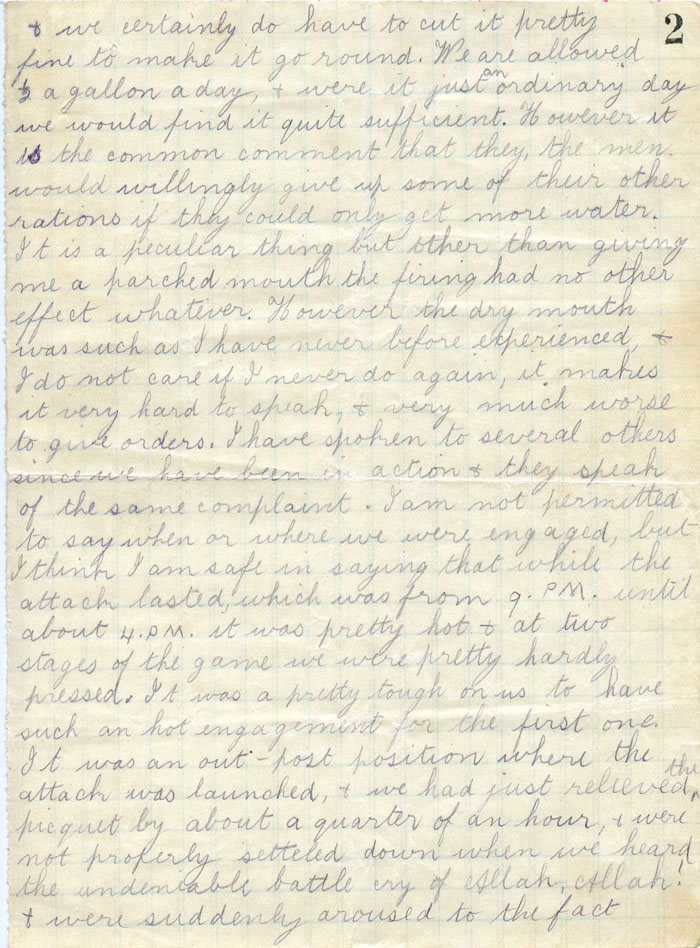 2
& we certainly do have to cut it pretty
fine to make it go round. We are allowed
½ a gallon a day, & were it just an ordinary day
we would find it quite sufficient. However it
is the common comment that they, the men.
would willingly give up some of their other
rations if they could only get more water.
It is a peculiar thing but other than giving
me a parched mouth the firing had no other
effect whatever. However the dry mouth
was such as I have never before experienced, &
I do not care if I never do again, it makes
it very hard to speak, & very much worse
to give orders. I have spoken to several others
since we have been in action & they speak
of the same complaint. I am not permitted
to say when or where we were engaged, but
I think I am safe in saying that while the
attack lasted, which was from 9. PM. until
about 4. P.M. it was pretty hot & at two
stages of the game we were pretty hardly
pressed. It was a pretty tough on us to have
such an hot engagement for the first one.
It was an out-post position where the
attack was launched, & we had just relieved the
picquet by about a quarter of an hour, & were
not properly setteled down when we heard
the undeniable battle cry of Allah, Allah!
& were suddenly aroused to the fact